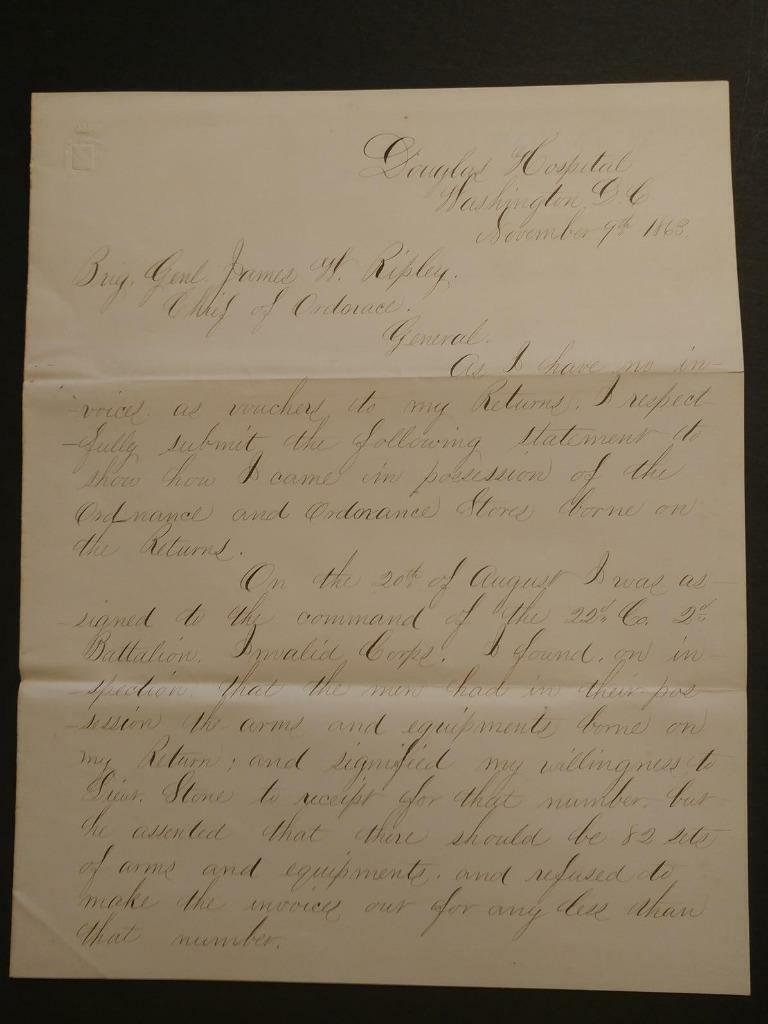 Douglas Hospital
Washington, D.C
November 9th 1863.
Brig. Genl. James W. Ripley.
Chief of Ordorace.
General.
As I have no in-
voices as vouchers to my Returns. I respect
-fully submit the following statement to
show how I came in possession of the
Ordnance and Ordorance Stores borne on
the Returns.
On the 20th of August I was as-
-signed to the command of the 22d Co. 2d
Battalion. Invalid Corps. I found, on in-
-spection, that the men had in their pos
-session the arms and equipments borne on
my Return; and signified my willingness to
Lieut. Stone to receipt for that number. but
he asserted that there should be 82 sets
of arms and equipments. and refused to
make the invoices out for any less than
that number.